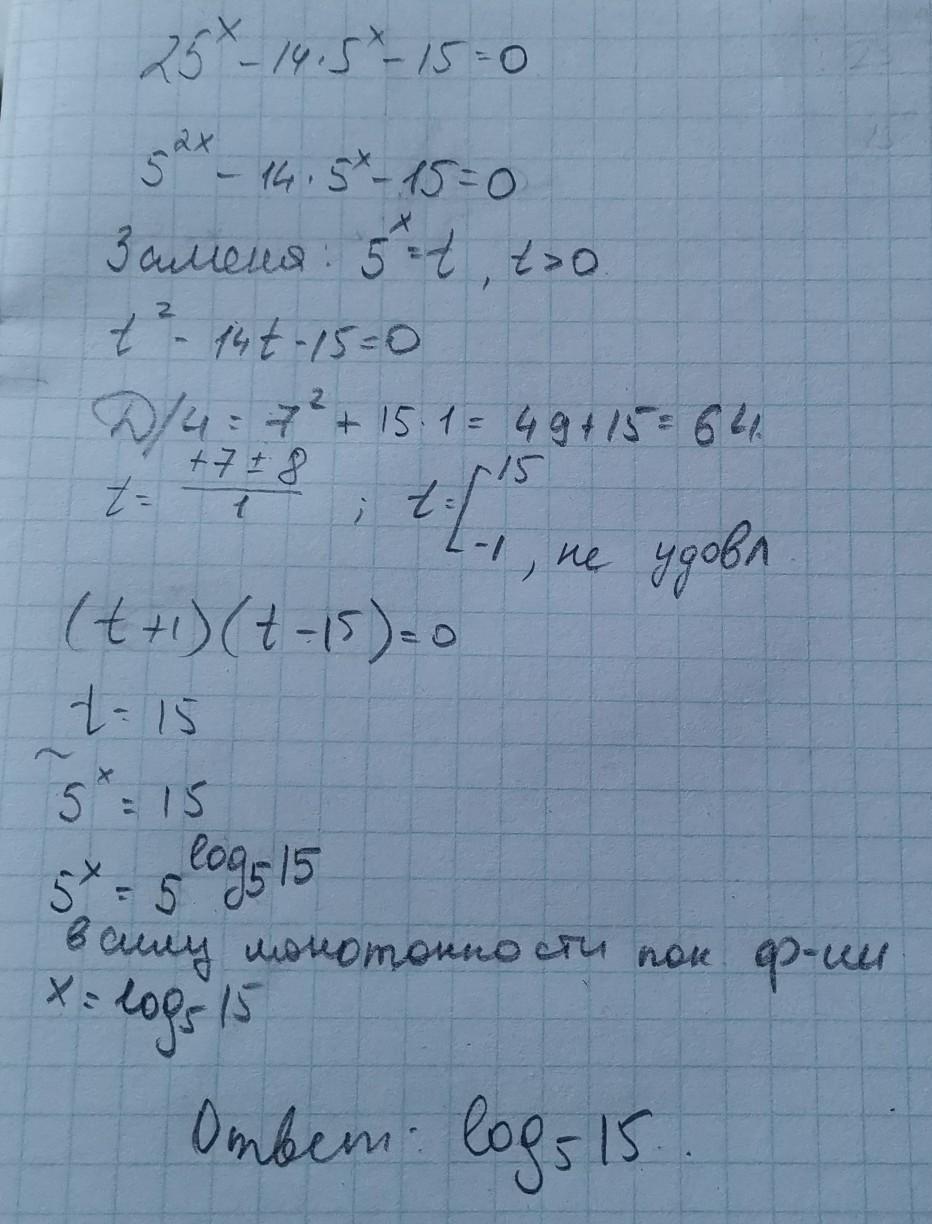 25ˣ - 14·5ˣ - 15 = 0
5²ˣ - 14·5ˣ - 15 = 0
Замена: 5ˣ = t, t > 0
t² - 14t - 15 = 0
D/4 = 7² + 15·1 = 49 + 15 = 64.
t = (+7 ± 8)/1 ; t = [15
-1, не удовл.
(t + 1)(t - 15) = 0
t = 15
~
5ˣ = 15
5ˣ = 5^(log₅15)
в силу монотонности пок ф-ии
x = log₅15
Ответ: log₅15.